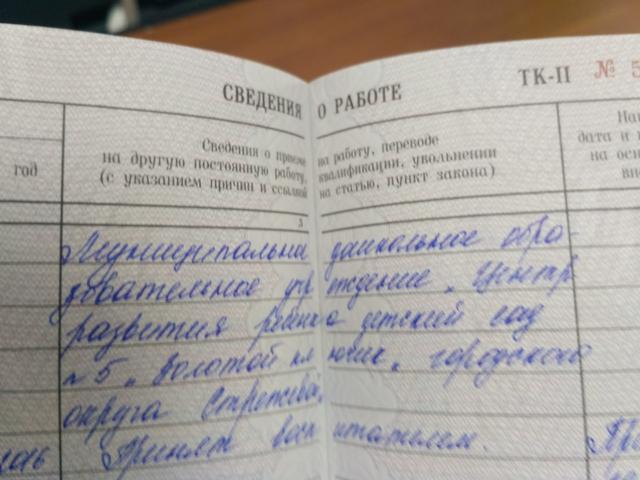 СВЕДЕНИЯ О РАБОТЕ ТК-II № 5
год
Сведения о приеме на работу, переводе
на другую постоянную работу, квалификации, увольнении
(с указанием причин и ссылкой на статью, пункт закона)
На
дата и
на осн
вн
3
Муниципальное дошкольное обра-
зовательное учреждение „Центр
развития ребенка детский сад
№5 „Золотой ключик" городского
округа Стрежевой.
Принят воспитателем.